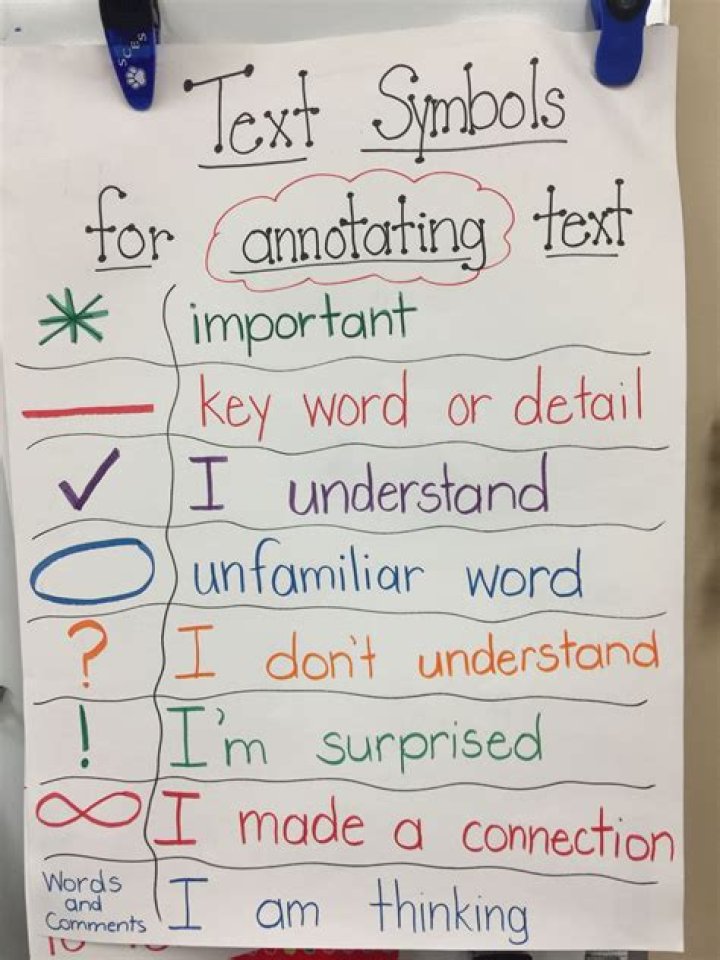 SCES
Text Symbols
for annotating text
* important
key word or detail
✓ I understand
unfamiliar word
? I don't understand
! I'm surprised
∞ I made a connection
Words
and
Comments
I am thinking